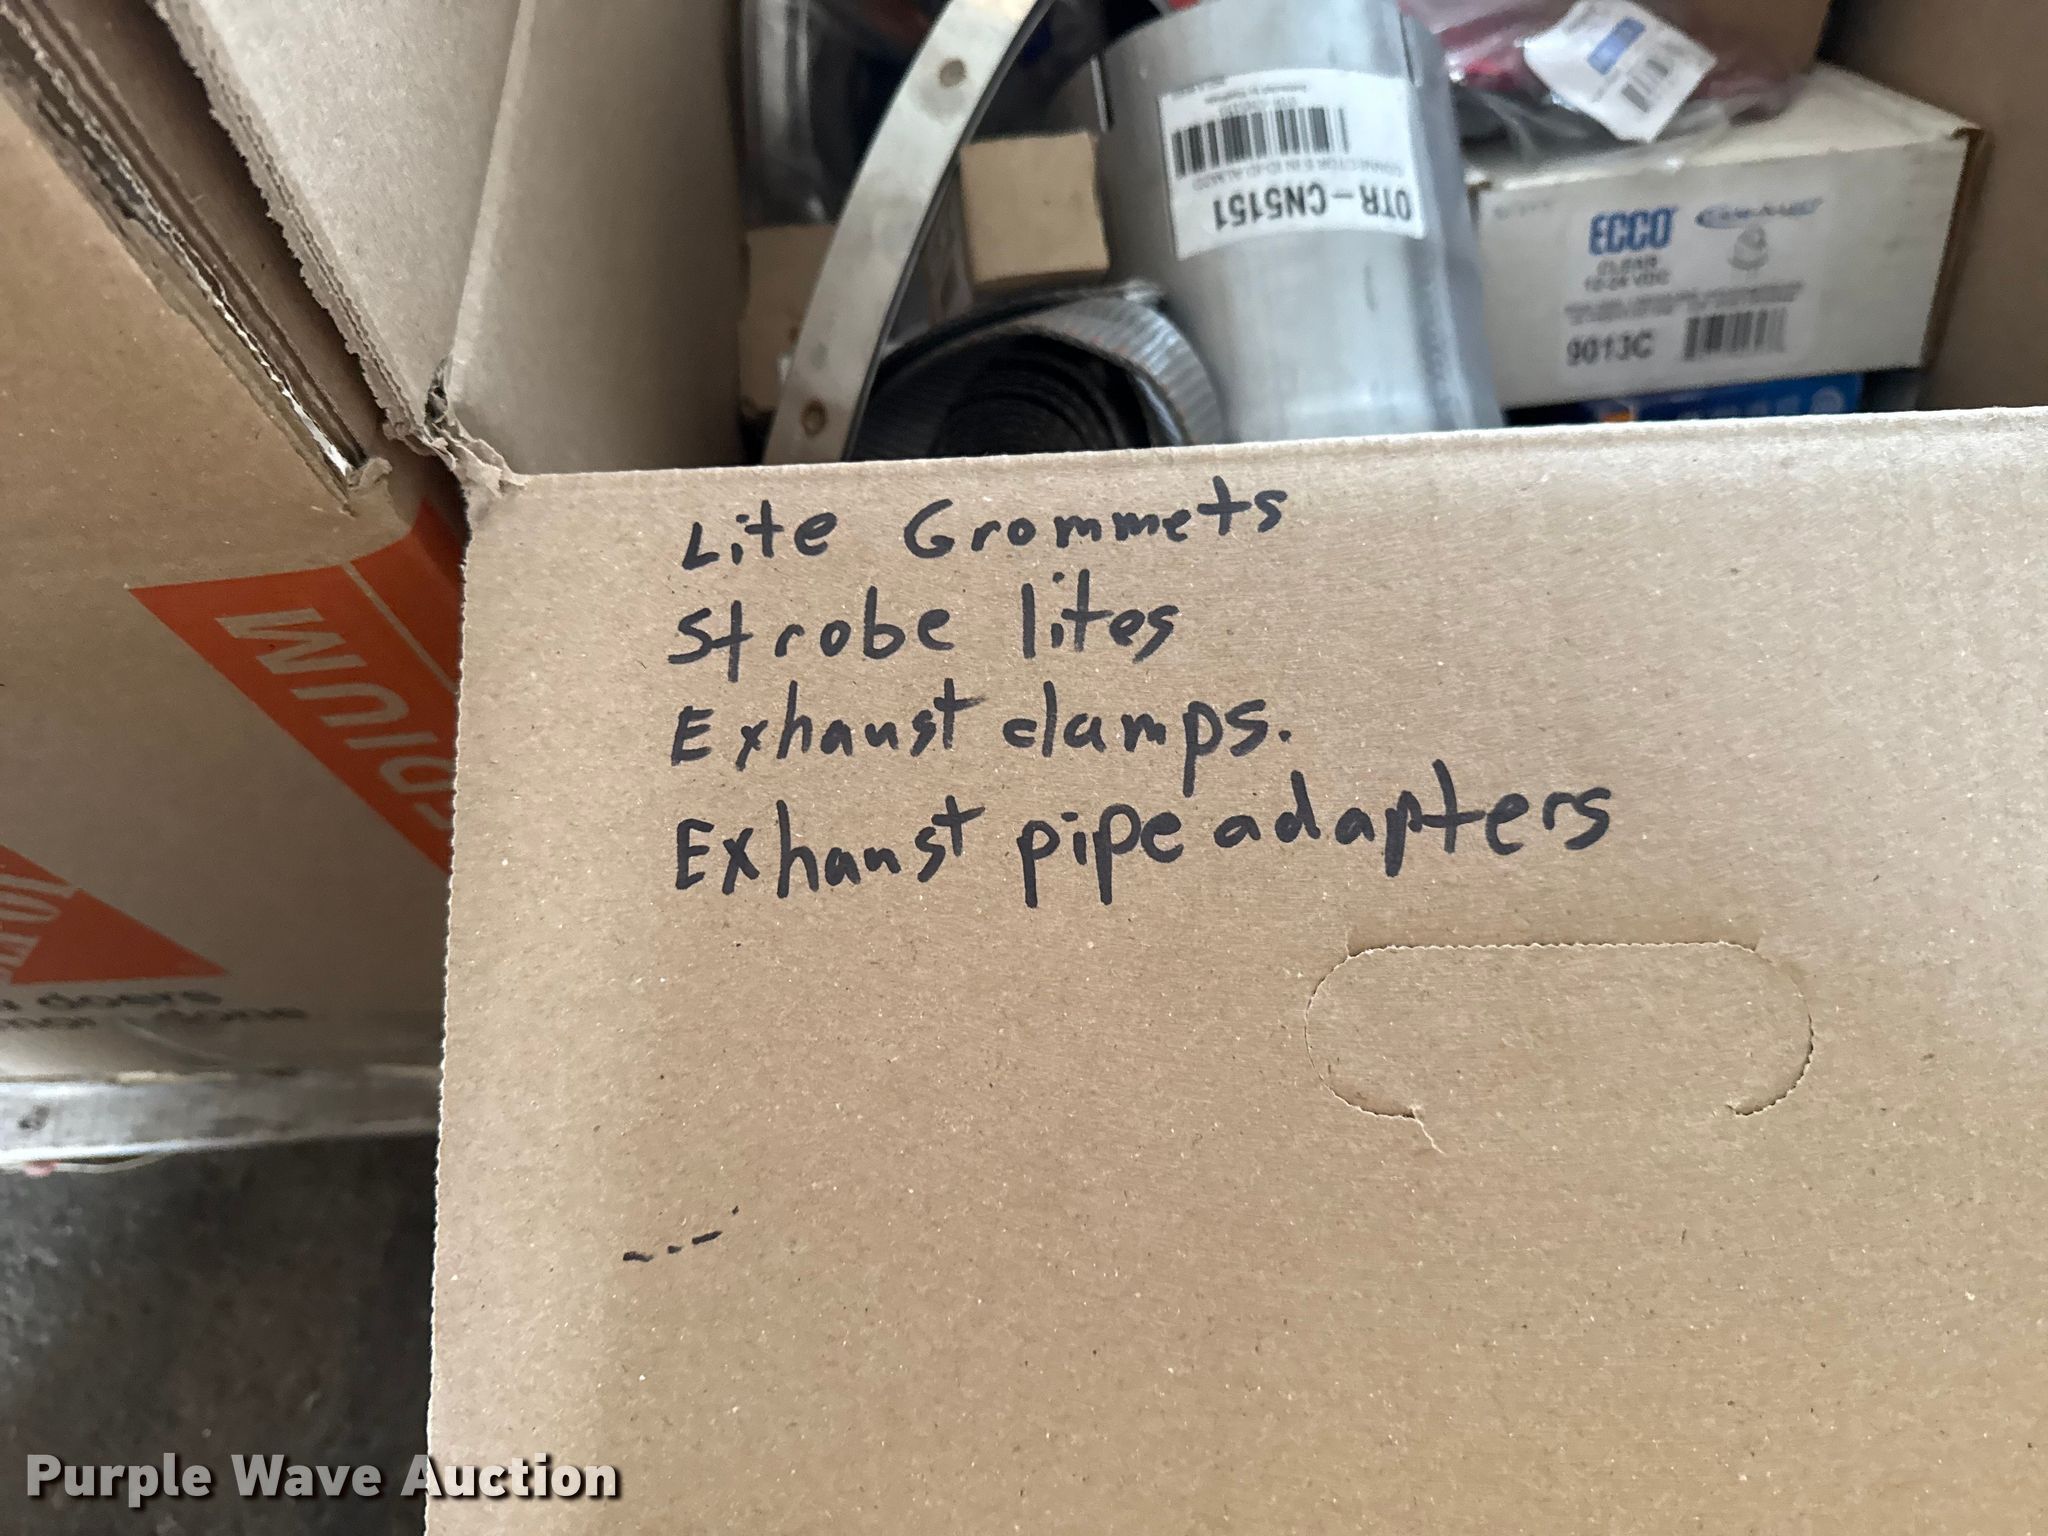 OTR-CN5151
ECCO
CLEAR
12-24 VDC
9013C
Lite Grommets
Strobe lites
Exhaust clamps.
Exhaust pipe adapters
DIUM
Purple Wave Auction